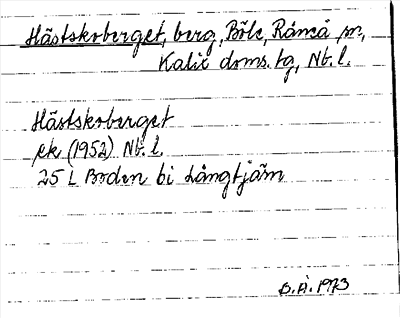 Hästskoberget, berg, Böle, Råneå sn,
Kalix doms. tg, Nb. l.
Hästskoberget
ek (1952) Nb. l.
25 L Boden bi Långtjärn
B. Å. 1973